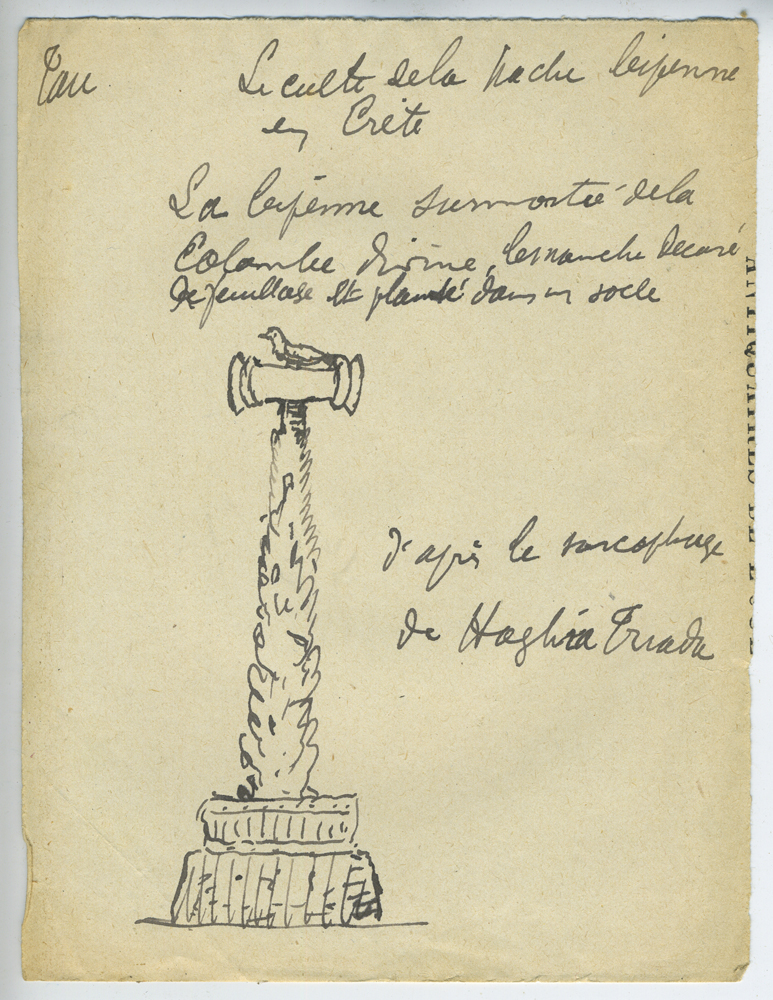 Tau
Le culte de la hache bipenne
en Crète
La bipenne surmontée de la
Colombe divine, le manche décoré
de feuillage est planté dans un socle
d'après le sarcophage
de Haghia Triada
ANTIQUAIRES DE